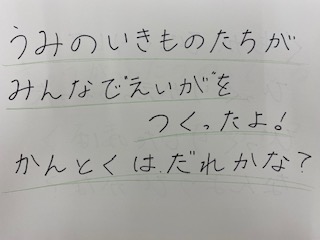 うみのいきものたちが
みんなでえいがを
つくったよ!
かんとくは.だれかな?